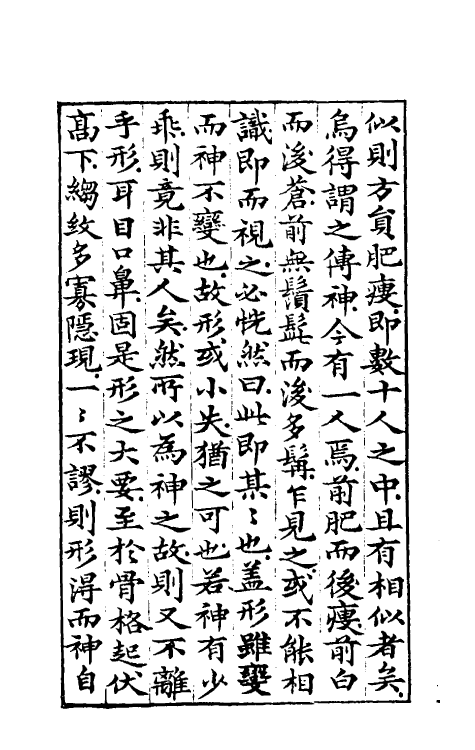 似則方貟肥瘦即數十人之中且有相似者矣
烏得謂之傳神今有一人焉前肥而後瘦前白
而後蒼前無鬚髭而後多髯乍見之或不能相
識即而視之必恍然曰此即某〻也盖形雖變
而神不變也故形或小失猶之可也若神有少
乖則竟非其人矣然所以為神之故則又不離
乎形耳目口鼻固是形之大要至於骨格起伏
髙下縐紋多寡隱現一〻不謬則形得而神自